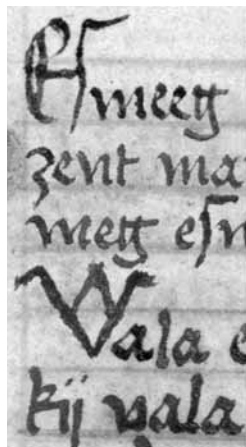 Eſmeeg
zent ma
meg eſm
Wala e
kij vala